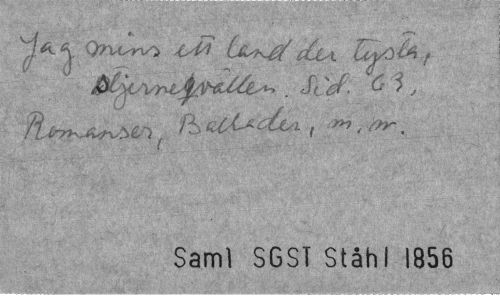 Jag mins ett land der tysta,
stjerneqvällen. Sid. 63.
Romanser, Ballader, m.m.
Saml SGST Ståhl 1856